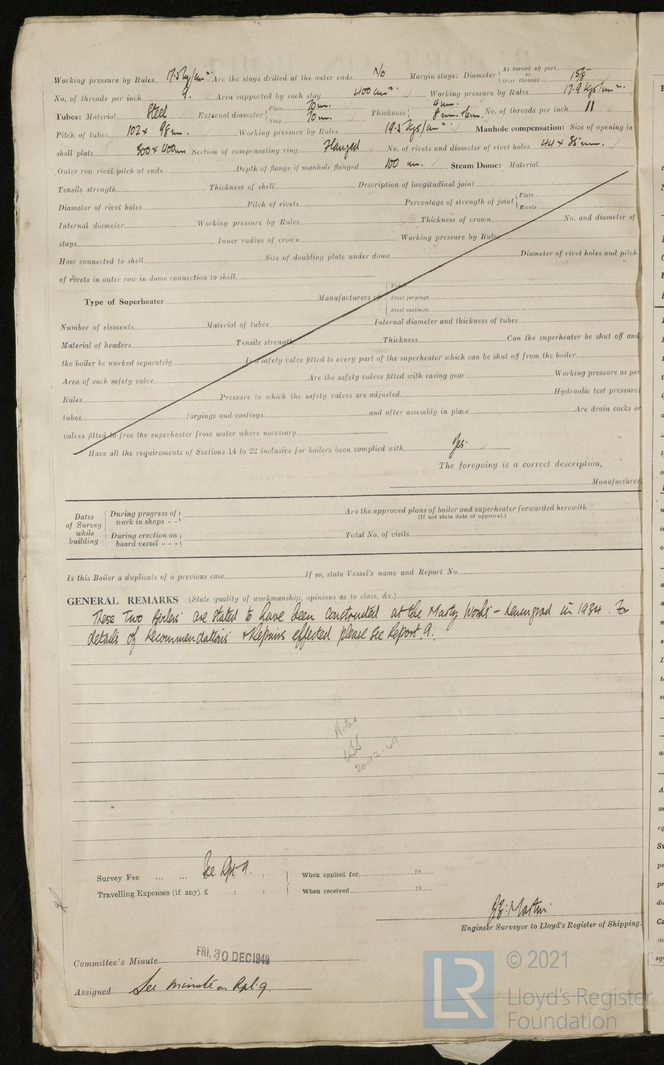 Working pressure by Rules 17.5 kg/cm² Are the stays drilled at the outer ends No Margin stays: Diameter { At turned off part, or Over threads 1⅝"
No. of threads per inch 9. Area supported by each stay 400 cm² Working pressure by Rules 17.9 kgs/cm².
Tubes: Material Steel External diameter { Plain 70 m. Stay 70 m. Thickness { No. of threads per inch 11
Pitch of tubes 102 x 98 m. Working pressure by Rules 19.5 kgs/cm² Manhole compensation: Size of opening in
shell plate 300 x 400 m Section of compensating ring Flanged No. of rivets and diameter of rivet holes 44 x 35 m.
Outer row rivet pitch at ends Depth of flange if manhole flanged 100 m. Steam Dome: Material
Tensile strength Thickness of shell Description of longitudinal joint
Diameter of rivet holes Pitch of rivets Percentage of strength of joint { Plate Rivets
Internal diameter Working pressure by Rules Thickness of crown No. and diameter of
stays Inner radius of crown Working pressure by Rules
How connected to shell Size of doubling plate under dome Diameter of rivet holes and pitch
of rivets in outer row in dome connection to shell
Type of Superheater Manufacturers of { Tubes Steel forgings Steel castings
Number of elements Material of tubes Internal diameter and thickness of tubes
Material of headers Tensile strength Thickness Can the superheater be shut off and
the boiler be worked separately Is a safety valve fitted to every part of the superheater which can be shut off from the boiler
Area of each safety valve Are the safety valves fitted with easing gear Working pressure as per
Rules Pressure to which the safety valves are adjusted Hydraulic test pressure
tubes forgings and castings and after assembly in place Are drain cocks or
valves fitted to free the superheater from water where necessary
Have all the requirements of Sections 14 to 22 inclusive for boilers been complied with Yes
The foregoing is a correct description,
Manufacturer
Dates of Survey while building { During progress of work in shops - - During erection on board vessel - - -
Are the approved plans of boiler and superheater forwarded herewith (If not state date of approval.)
Total No. of visits
Is this Boiler a duplicate of a previous case If so, state Vessel's name and Report No.
GENERAL REMARKS (State quality of workmanship, opinions as to class, &c.)
These Two Boilers are stated to have been constructed at the Marty Works - Leningrad in 1934. For
details of recommendations & Repairs effected please see Report. 9.
Noted
20-12-49
Survey Fee ... ... See Rpt 9. : : } When applied for 19
Travelling Expenses (if any) £ : : } When received 19
Martin
Engineer Surveyor to Lloyd's Register of Shipping.
Committee's Minute FRI. 30 DEC 1949
Assigned See minute on Rpt. 9.
LR © 2021
Lloyd's Register
Foundation